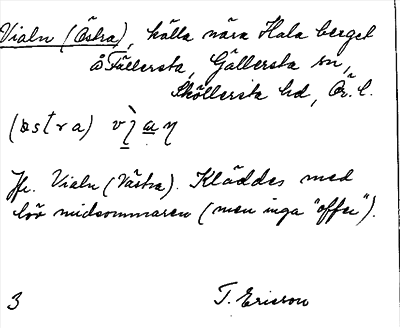 Vialn (Östra), källa nära Hala berget
å Fällersta, Gällersta sn,
Sköllersta hd, Ör. l.
(östra)
Jfr. Vialn (Västra). Kläddes med
löv midsommaren (men inga "offer").
3 T. Ericson